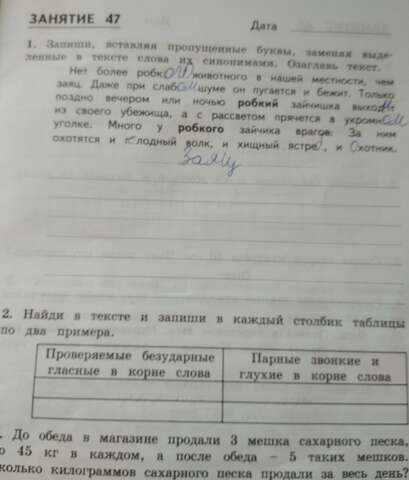 ЗАНЯТИЕ 47
Дата
1. Запиши, вставляя пропущенные буквы, заменяя выде-
ленные в тексте слова их синонимами. Озаглавь текст.
Нет более робкого животного в нашей местности, чем
заяц. Даже при слабом шуме он пугается и бежит. Только
поздно вечером или ночью робкий зайчишка выходит
из своего убежища, а с рассветом прячется в укромном
уголке. Много у робкого зайчика врагов. За ним
охотятся и голодный волк, и хищный ястреб, и охотник.
Заяц
2. Найди в тексте и запиши в каждый столбик таблицы
по два примера.
Проверяемые безударные гласные в корне слова
Парные звонкие и глухие в корне слова
. До обеда в магазине продали 3 мешка сахарного песка,
о 45 кг в каждом, а после обеда – 5 таких мешков.
колько килограммов сахарного песка продали за весь день?